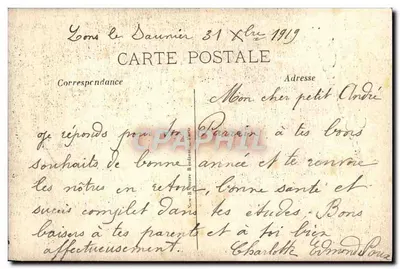 Lons le Saunier 31 Xbre 1919
CARTE POSTALE
Correspondance
Adresse
Mon cher petit André
Je réponds pour ton Parrain à tes bons
souhaits de bonne année et te renvoie
les nôtres en retour, bonne santé et
succès complet dans tes études. Bons
baisers à tes parents et à toi bien
affectueusement. Charlotte Edmond
CPAPHIL